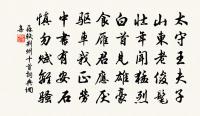 太守王夫子
山東老俊髦
壯年聞猛烈
白首見雄豪
食雁君應厭
驅車我正勞
中書有安石
慎勿賦離騷
蘇軾荊州十首詞典網
集